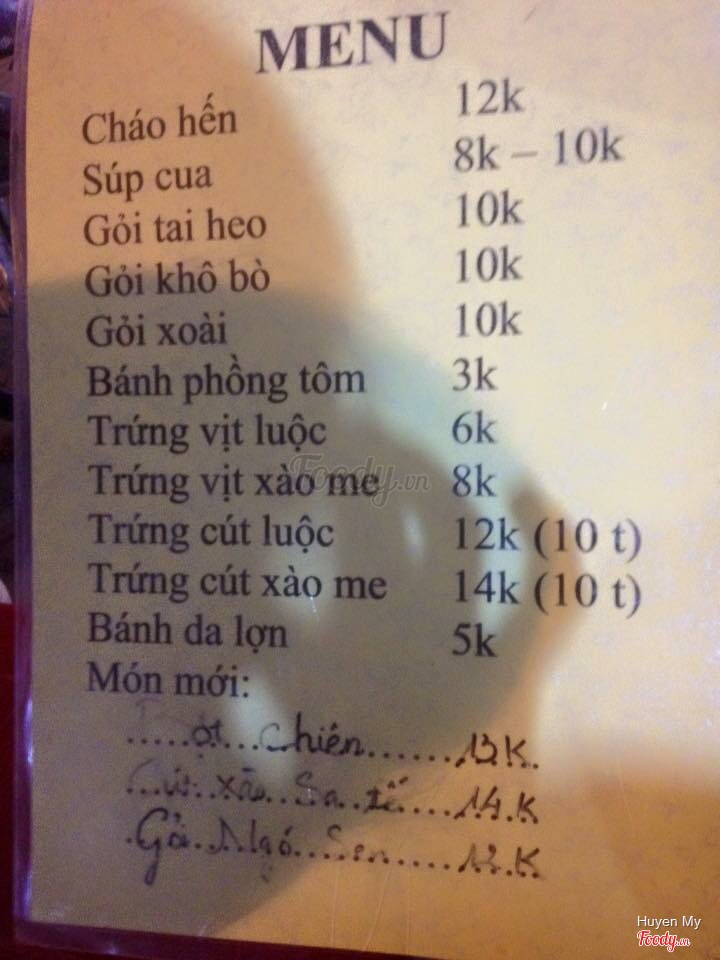 MENU
Cháo hến 12k
Súp cua 8k – 10k
Gỏi tai heo 10k
Gỏi khô bò 10k
Gỏi xoài 10k
Bánh phồng tôm 3k
Trứng vịt luộc 6k
Trứng vịt xào me 8k
Trứng cút luộc 12k (10 t)
Trứng cút xào me 14k (10 t)
Bánh da lợn 5k
Món mới:
.....ột...Chiên.......13K.
xào..Sa..tế....14.K
Gỏi..Ngó...Sen.......K
Foody.vn
Huyen My
Foody.vn